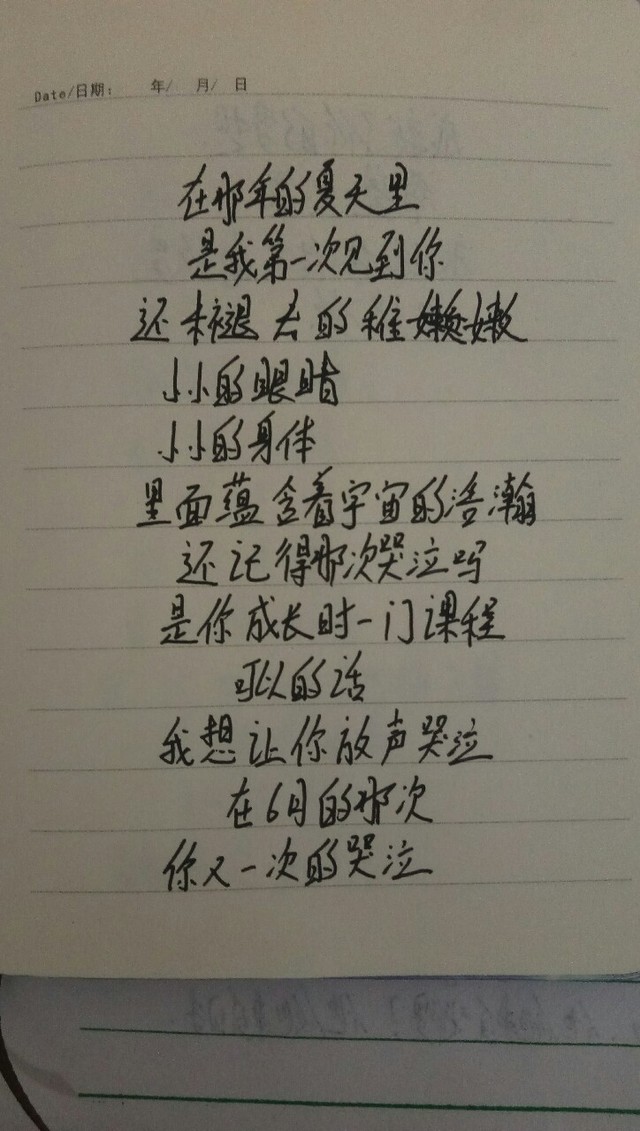 Date/日期： 年/ 月/ 日
在那年的夏天里
是我第一次见到你
还未褪去的稚嫩
小小的眼睛
小小的身体
里面蕴含着宇宙的浩瀚
还记得那次哭泣吗
是你成长时一门课程
可以的话
我想让你放声哭泣
在6月的那次
你又一次的哭泣